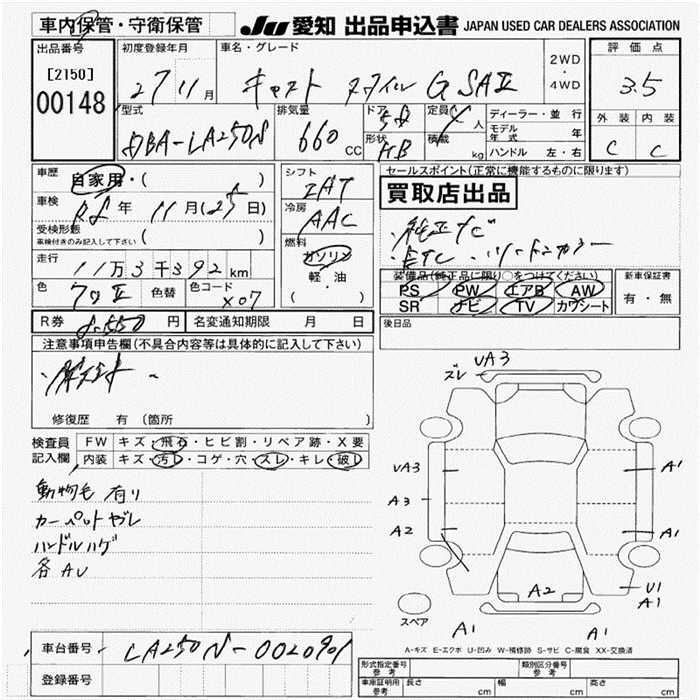 車内保管・守衛保管
JU 愛知 出品申込書 JAPAN USED CAR DEALERS ASSOCIATION
出品番号
[2150]
00148
初度登録年月
27 11月
車名・グレード
キャスト スタイル G SAⅡ
2WD
・
4WD
評価点
3.5
外装 内装
C C
型式
DBA-LA250S
排気量
660 CC
ドア
5D
形状
HB
定員
4人
積載
kg
ディーラー・並行
モデル年式 年
ハンドル 左・右
車歴
自家用・( )
車検
R8年 11月(25日)
受検形態
車検付きのみ記入して下さい ( )
走行
11万3千392km
色
色替
色コード
X07
シフト
IAT
冷房
AAC
燃料
ガソリン
軽・油
( )
セールスポイント(正常に機能するものに限ります)
買取店出品
・純正ナビ
・ETC
装備品(純正品に限り○をつけてください)
PS PW エアB AW
SR ナビ TV カワシート
新車保証書
有・無
後日品
R券 8.550円
名変通知期限 月 日
注意事項申告欄(不具合内容等は具体的に記入して下さい)
修復歴 有(箇所 )
検査員
記入欄
FW キズ・飛石・ヒビ割・リペア跡・X要
内装 キズ・汚レ・コゲ・穴・スレ・キレ・破レ
動物毛有り
カーペットヤブレ
ハンドルハゲ
各AU
ズレ UA3
UA3
A3
A2
A1
A1
A2
U1
A1
A1
A1
スペア
A-キズ E-エクボ U-凹み W-補修跡 S-サビ C-腐食 XX-交換済
車台番号
LA250S-0020901
登録番号
形式指定番号
参考
類別区分番号
参考
車庫証明用
参考
長さ cm
幅 cm
高さ cm